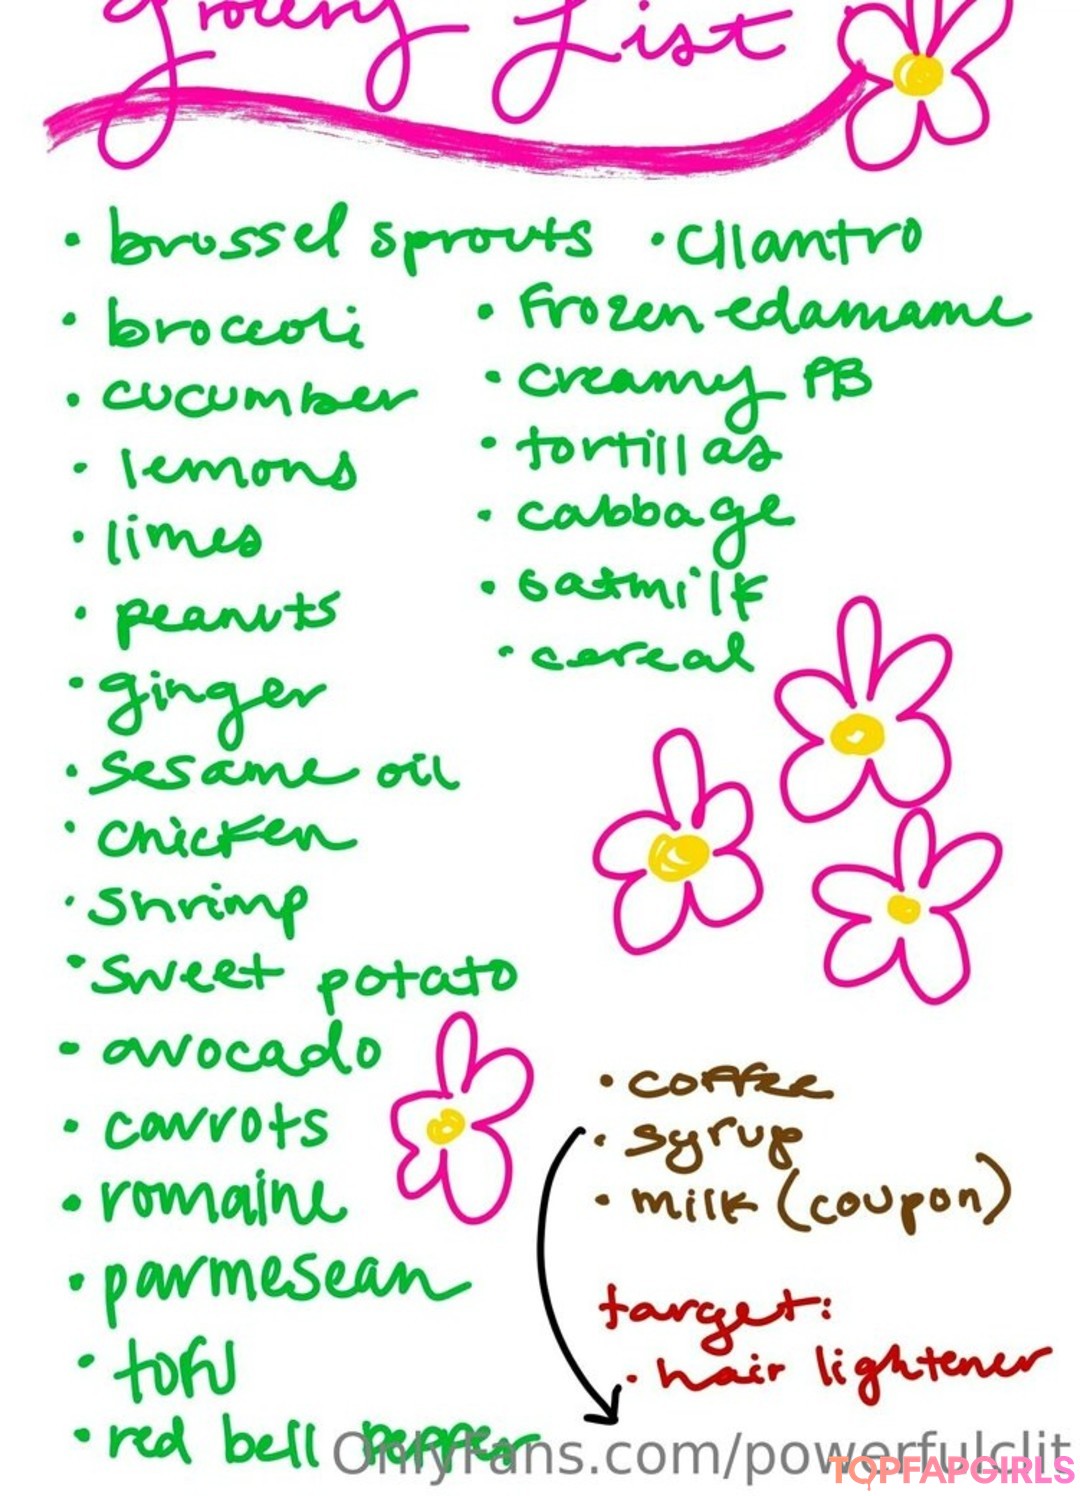 Grocery List
• brussel sprouts
• broccoli
• cucumber
• lemons
• limes
• peanuts
• ginger
• sesame oil
• chicken
• shrimp
• sweet potato
• avocado
• carrots
• romaine
• parmesean
• tofu
• red bell pepper
• cilantro
• frozen edamame
• creamy PB
• tortillas
• cabbage
• oatmilk
• cereal
• coffee
• syrup
• milk (coupon)
target:
• hair lightener
OnlyFans.com/powerfulclit
TOPFAPGIRLS